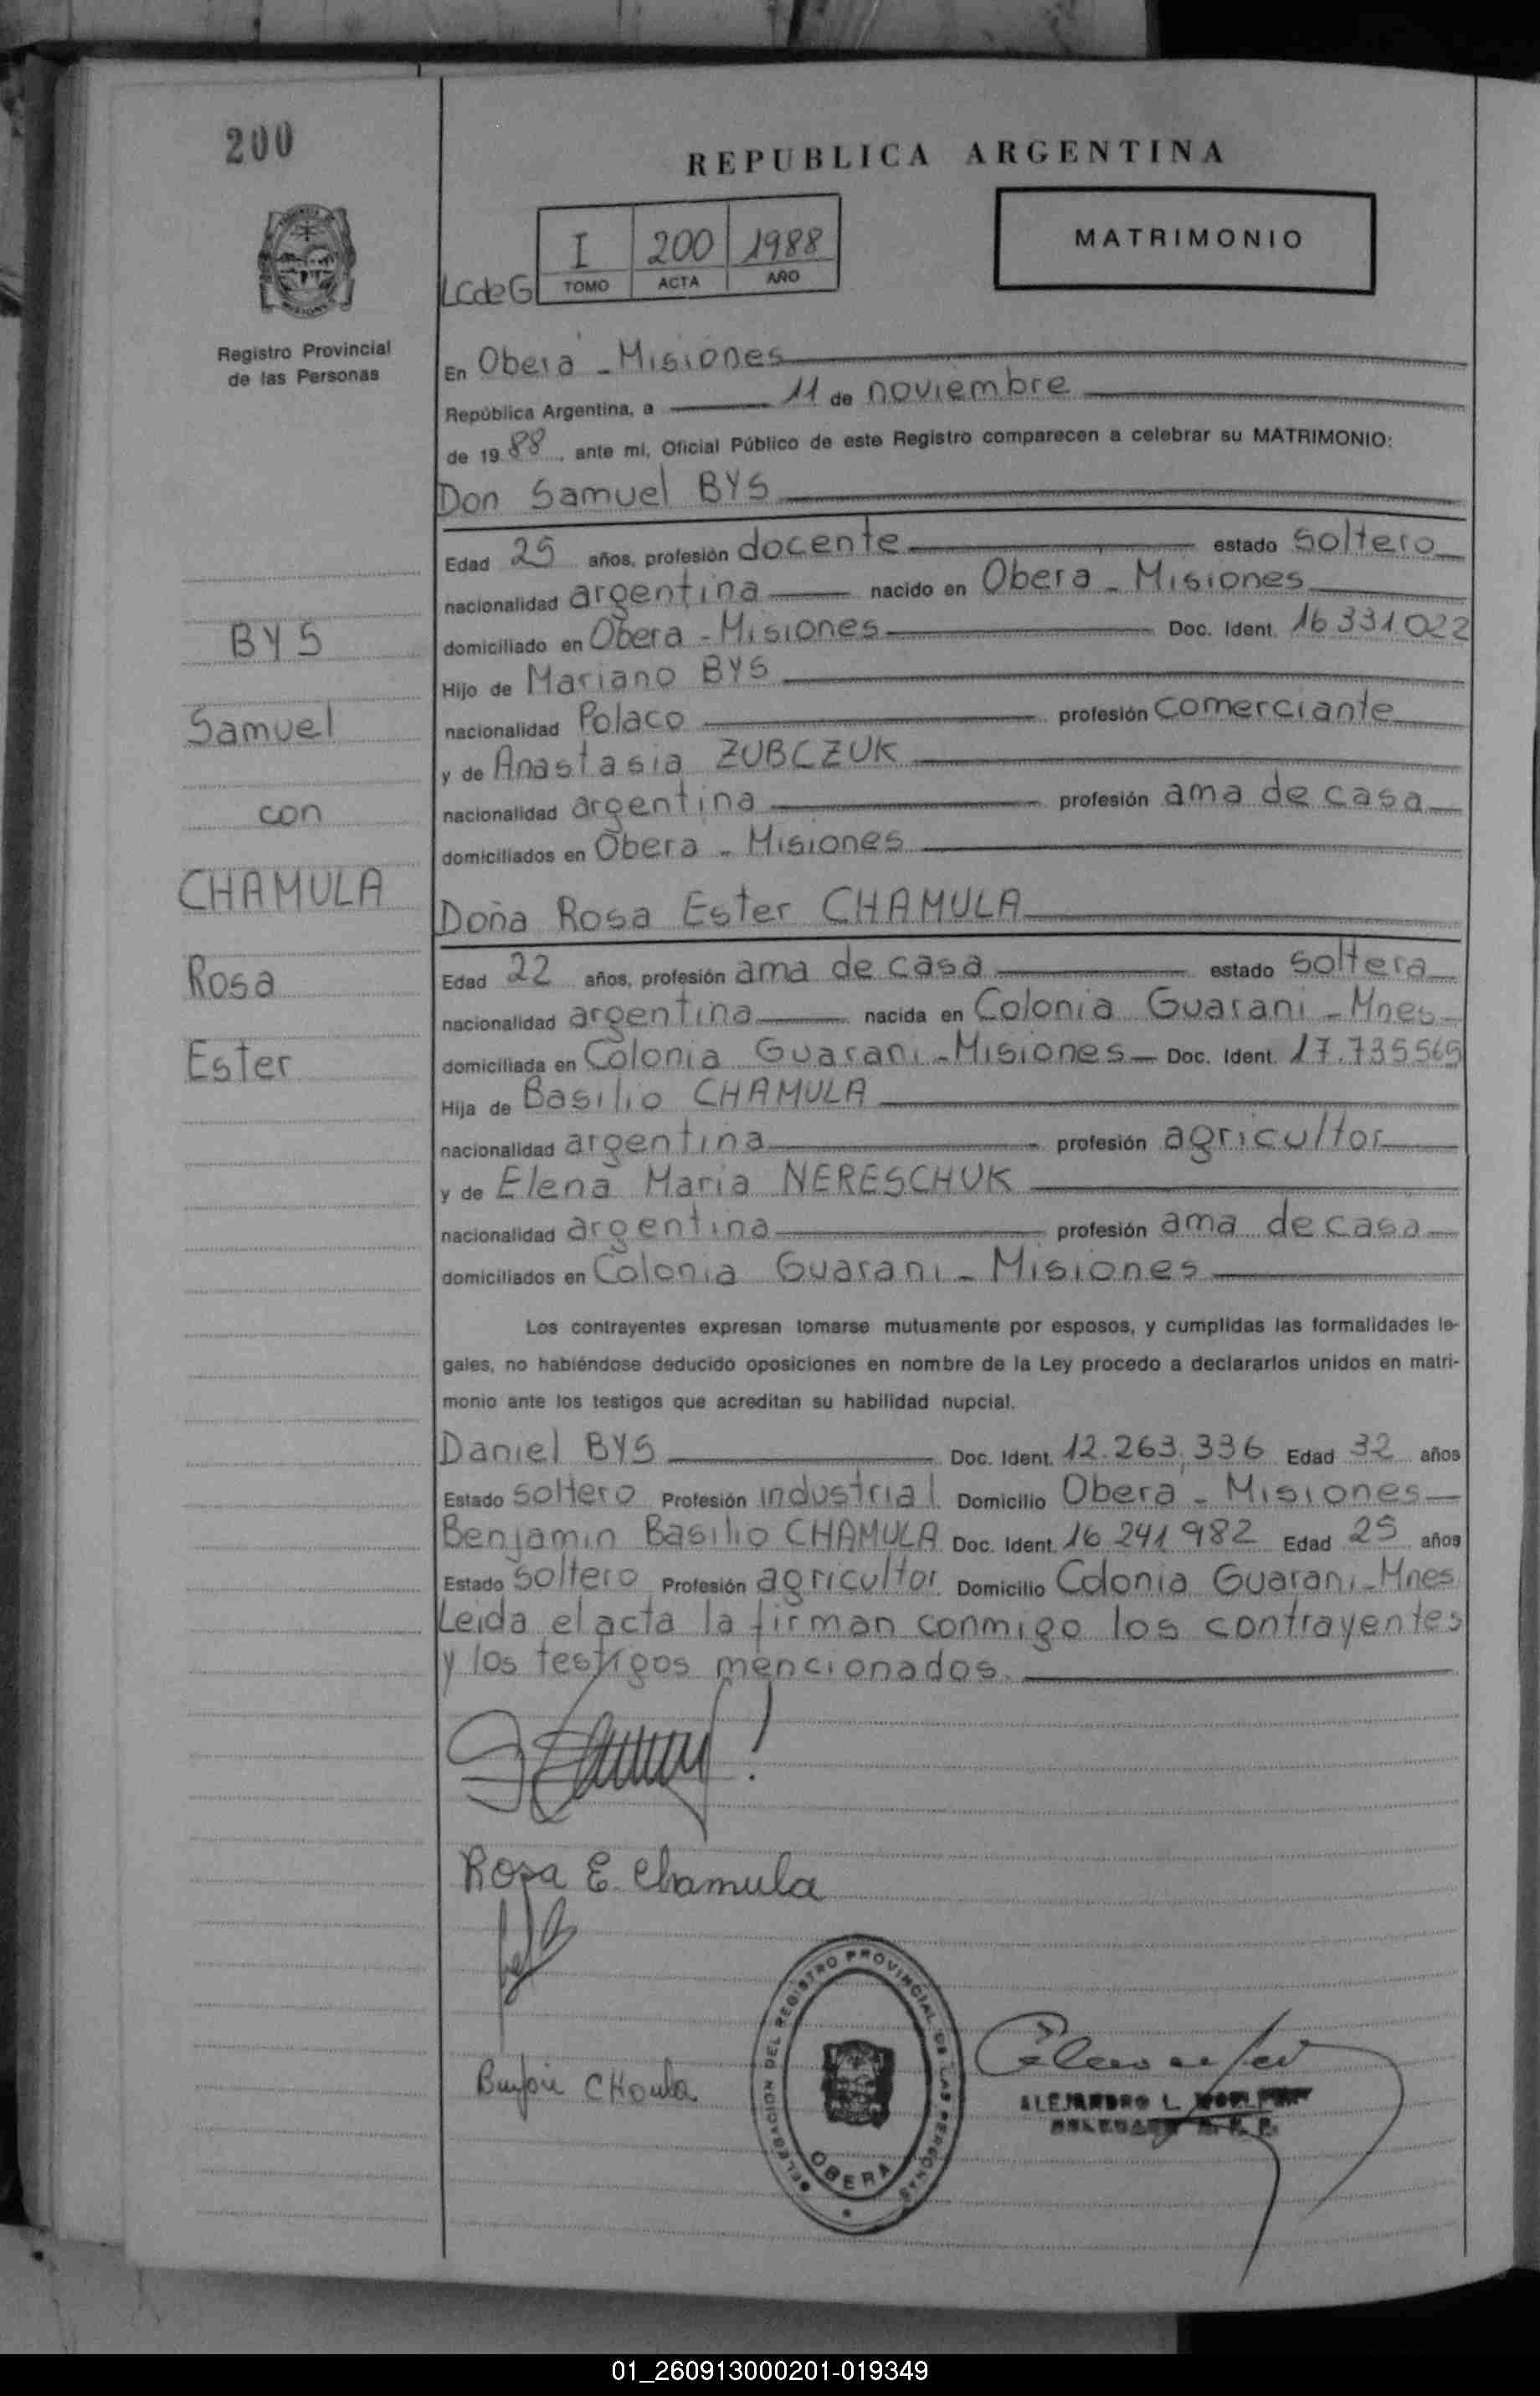 200
REPUBLICA ARGENTINA
I 200 1988
TOMO ACTA AÑO
LCdeG
MATRIMONIO
Registro Provincial
de las Personas
En Oberá - Misiones
República Argentina, a 11 de noviembre
de 1988, ante mi, Oficial Público de este Registro comparecen a celebrar su MATRIMONIO:
Don Samuel BYS
Edad 25 años, profesión docente estado soltero
nacionalidad argentina nacido en Obera - Misiones
domiciliado en Obera - Misiones Doc. Ident. 16 331.022
Hijo de Mariano BYS
nacionalidad Polaco profesión comerciante
y de Anastasia ZUBCZUK
nacionalidad argentina profesión ama de casa
domiciliados en Obera - Misiones
Doña Rosa Ester CHAMULA
Edad 22 años, profesión ama de casa estado soltera
nacionalidad argentina nacida en Colonia Guarani - Mnes
domiciliada en Colonia Guarani - Misiones Doc. Ident. 17.735565
Hija de Basilio CHAMULA
nacionalidad argentina profesión agricultor
y de Elena Maria NERESCHUK
nacionalidad argentina profesión ama de casa
domiciliados en Colonia Guarani - Misiones
BYS
Samuel
con
CHAMULA
Rosa
Ester
Los contrayentes expresan tomarse mutuamente por esposos, y cumplidas las formalidades le-
gales, no habiéndose deducido oposiciones en nombre de la Ley procedo a declararlos unidos en matri-
monio ante los testigos que acreditan su habilidad nupcial.
Daniel BYS Doc. Ident. 12.263.336 Edad 32 años
Estado soltero Profesión industrial Domicilio Oberá - Misiones
Benjamin Basilio CHAMULA Doc. Ident. 16 241 982 Edad 25 años
Estado soltero Profesión agricultor Domicilio Colonia Guarani - Mnes
Leida el acta la firman conmigo los contrayentes
y los testigos mencionados.
Rosa E. Chamula
DELEGACION DEL REGISTRO PROVINCIAL DE LAS PERSONAS
OBERA
ALEJANDRO L.
01_260913000201-019349